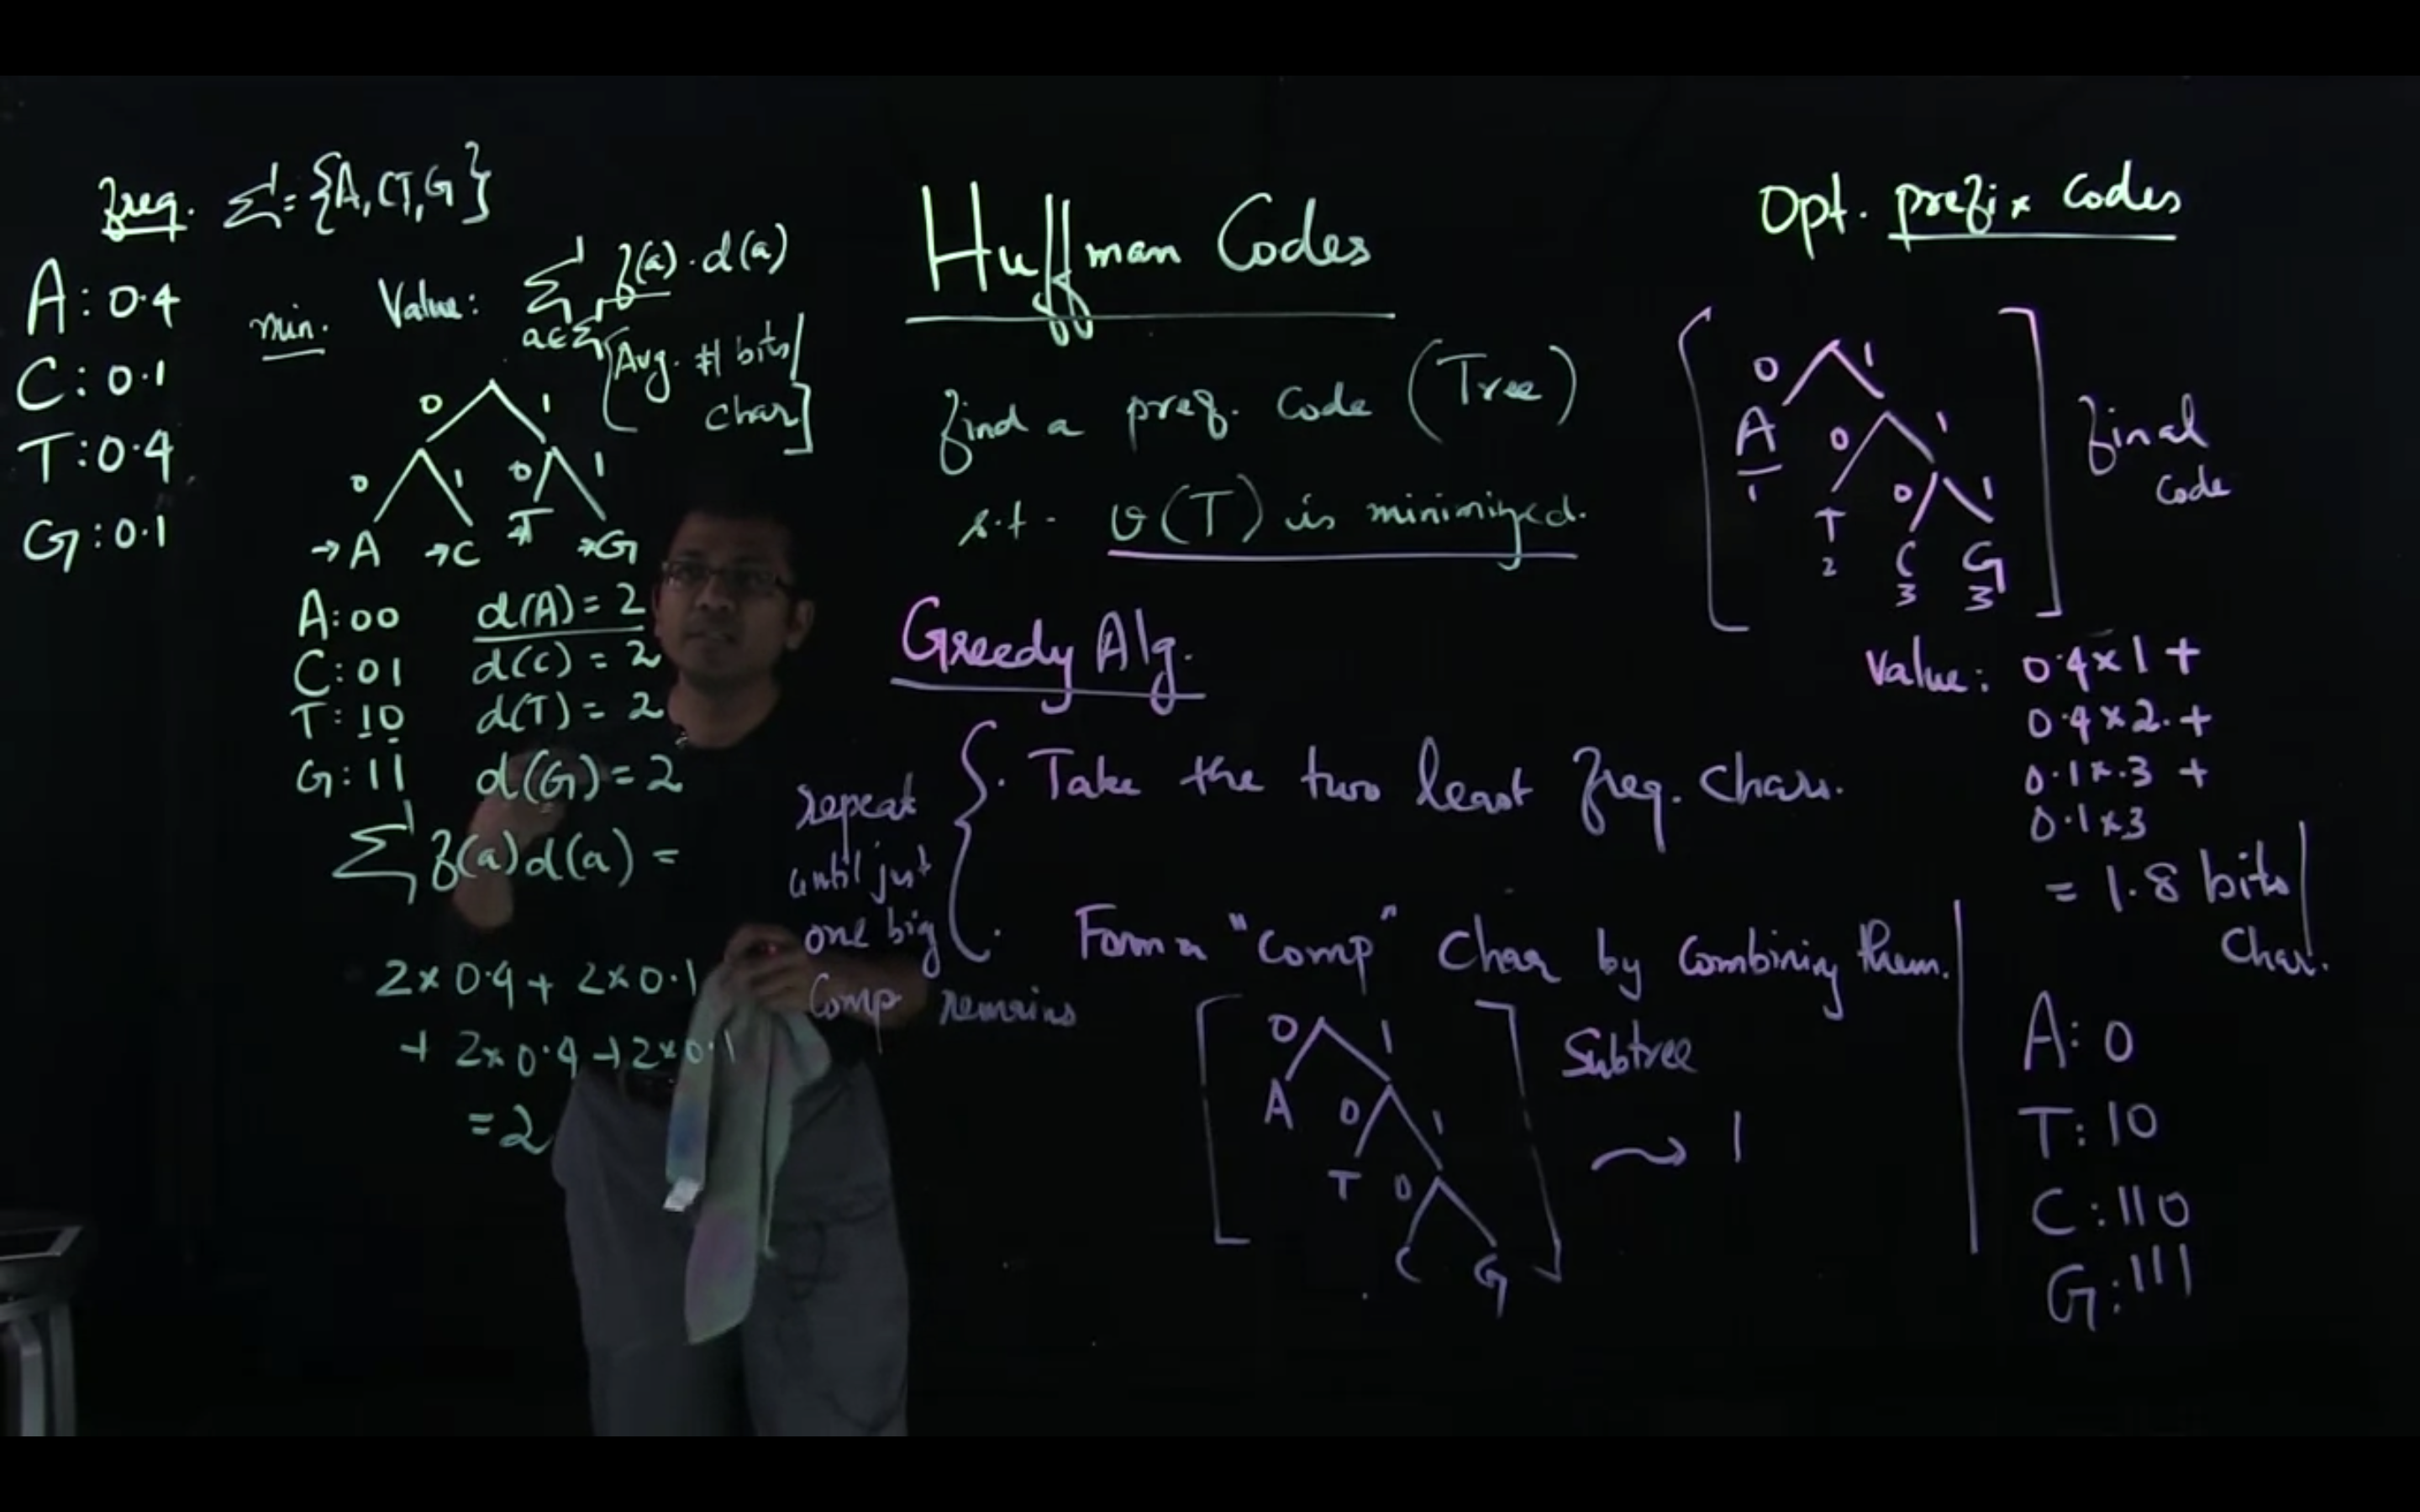 freq. Σ = {A, C, T, G}
A: 0.4
C: 0.1
T: 0.4
G: 0.1
min. Value: Σ f(a)·d(a)
a∈Σ
[Avg. # bits/
char]
0 1
0 1 0 1
→A →C →T →G
A: 00 d(A) = 2
C: 01 d(C) = 2
T: 10 d(T) = 2
G: 11 d(G) = 2
Σ f(a)d(a) =
2×0.4 + 2×0.1
+ 2×0.4 + 2×0.1
= 2
Huffman Codes
find a pref. code (Tree)
s.t. v(T) is minimized.
Greedy Alg.
repeat
until just
one big
comp remains
{. Take the two least freq. chars.
. Form a "comp" char by combining them.
0 1
A 0 1
T 0 1
C G
Subtree
⇝ 1
Opt. prefix codes
0 1
A 0 1
1
T 0 1
2 C G
3 3
final
code
Value: 0.4×1 +
0.4×2. +
0.1×.3 +
0.1×3
= 1.8 bits/
char.
A: 0
T: 10
C: 110
G: 111